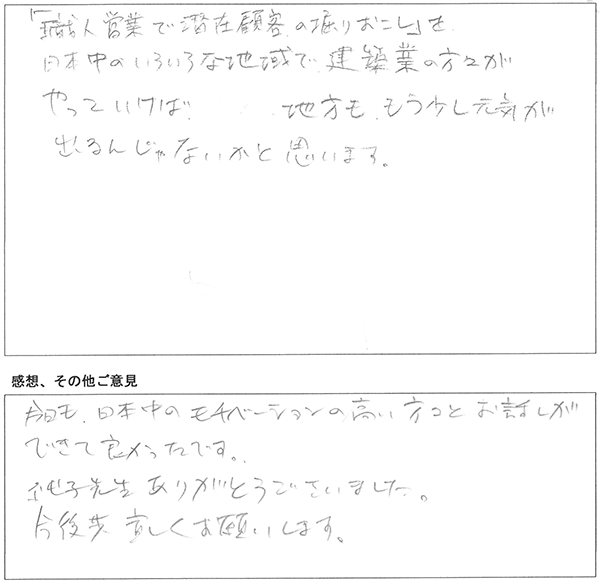 「職人営業で潜在顧客の掘りおこし」を
日本中のいろいろな地域で、建築業の方々が
やっていけば、 地方も、もう少し元気が
出るんじゃないかと思います。
感想、その他ご意見
今日も、日本中のモチベーションの高い方々とお話しが
できて良かったです。
先生ありがとうございました。
今後共宜しくお願いします。